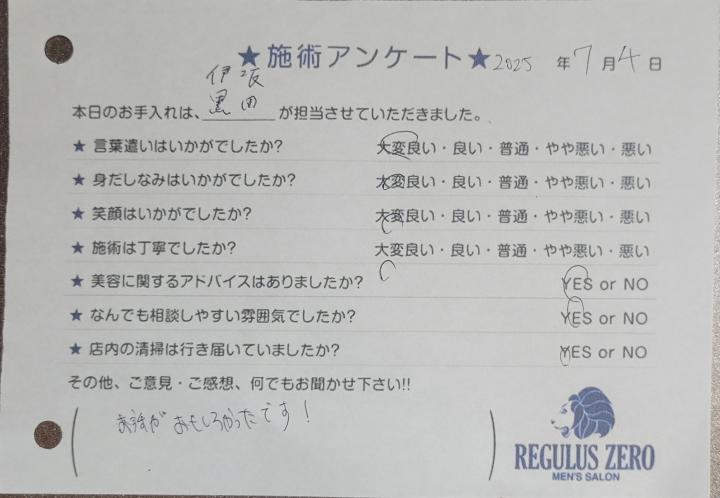 ★施術アンケート★ 2025 年 7 月 4 日
伊坂
本日のお手入れは、黒田が担当させていただきました。
★ 言葉遣いはいかがでしたか? 大変良い・良い・普通・やや悪い・悪い
★ 身だしなみはいかがでしたか? 大変良い・良い・普通・やや悪い・悪い
★ 笑顔はいかがでしたか? 大変良い・良い・普通・やや悪い・悪い
★ 施術は丁寧でしたか? 大変良い・良い・普通・やや悪い・悪い
★ 美容に関するアドバイスはありましたか? YES or NO
★ なんでも相談しやすい雰囲気でしたか? YES or NO
★ 店内の清掃は行き届いていましたか? YES or NO
その他、ご意見・ご感想、何でもお聞かせ下さい!!
お話がおもしろかったです!
REGULUS ZERO
MEN'S SALON